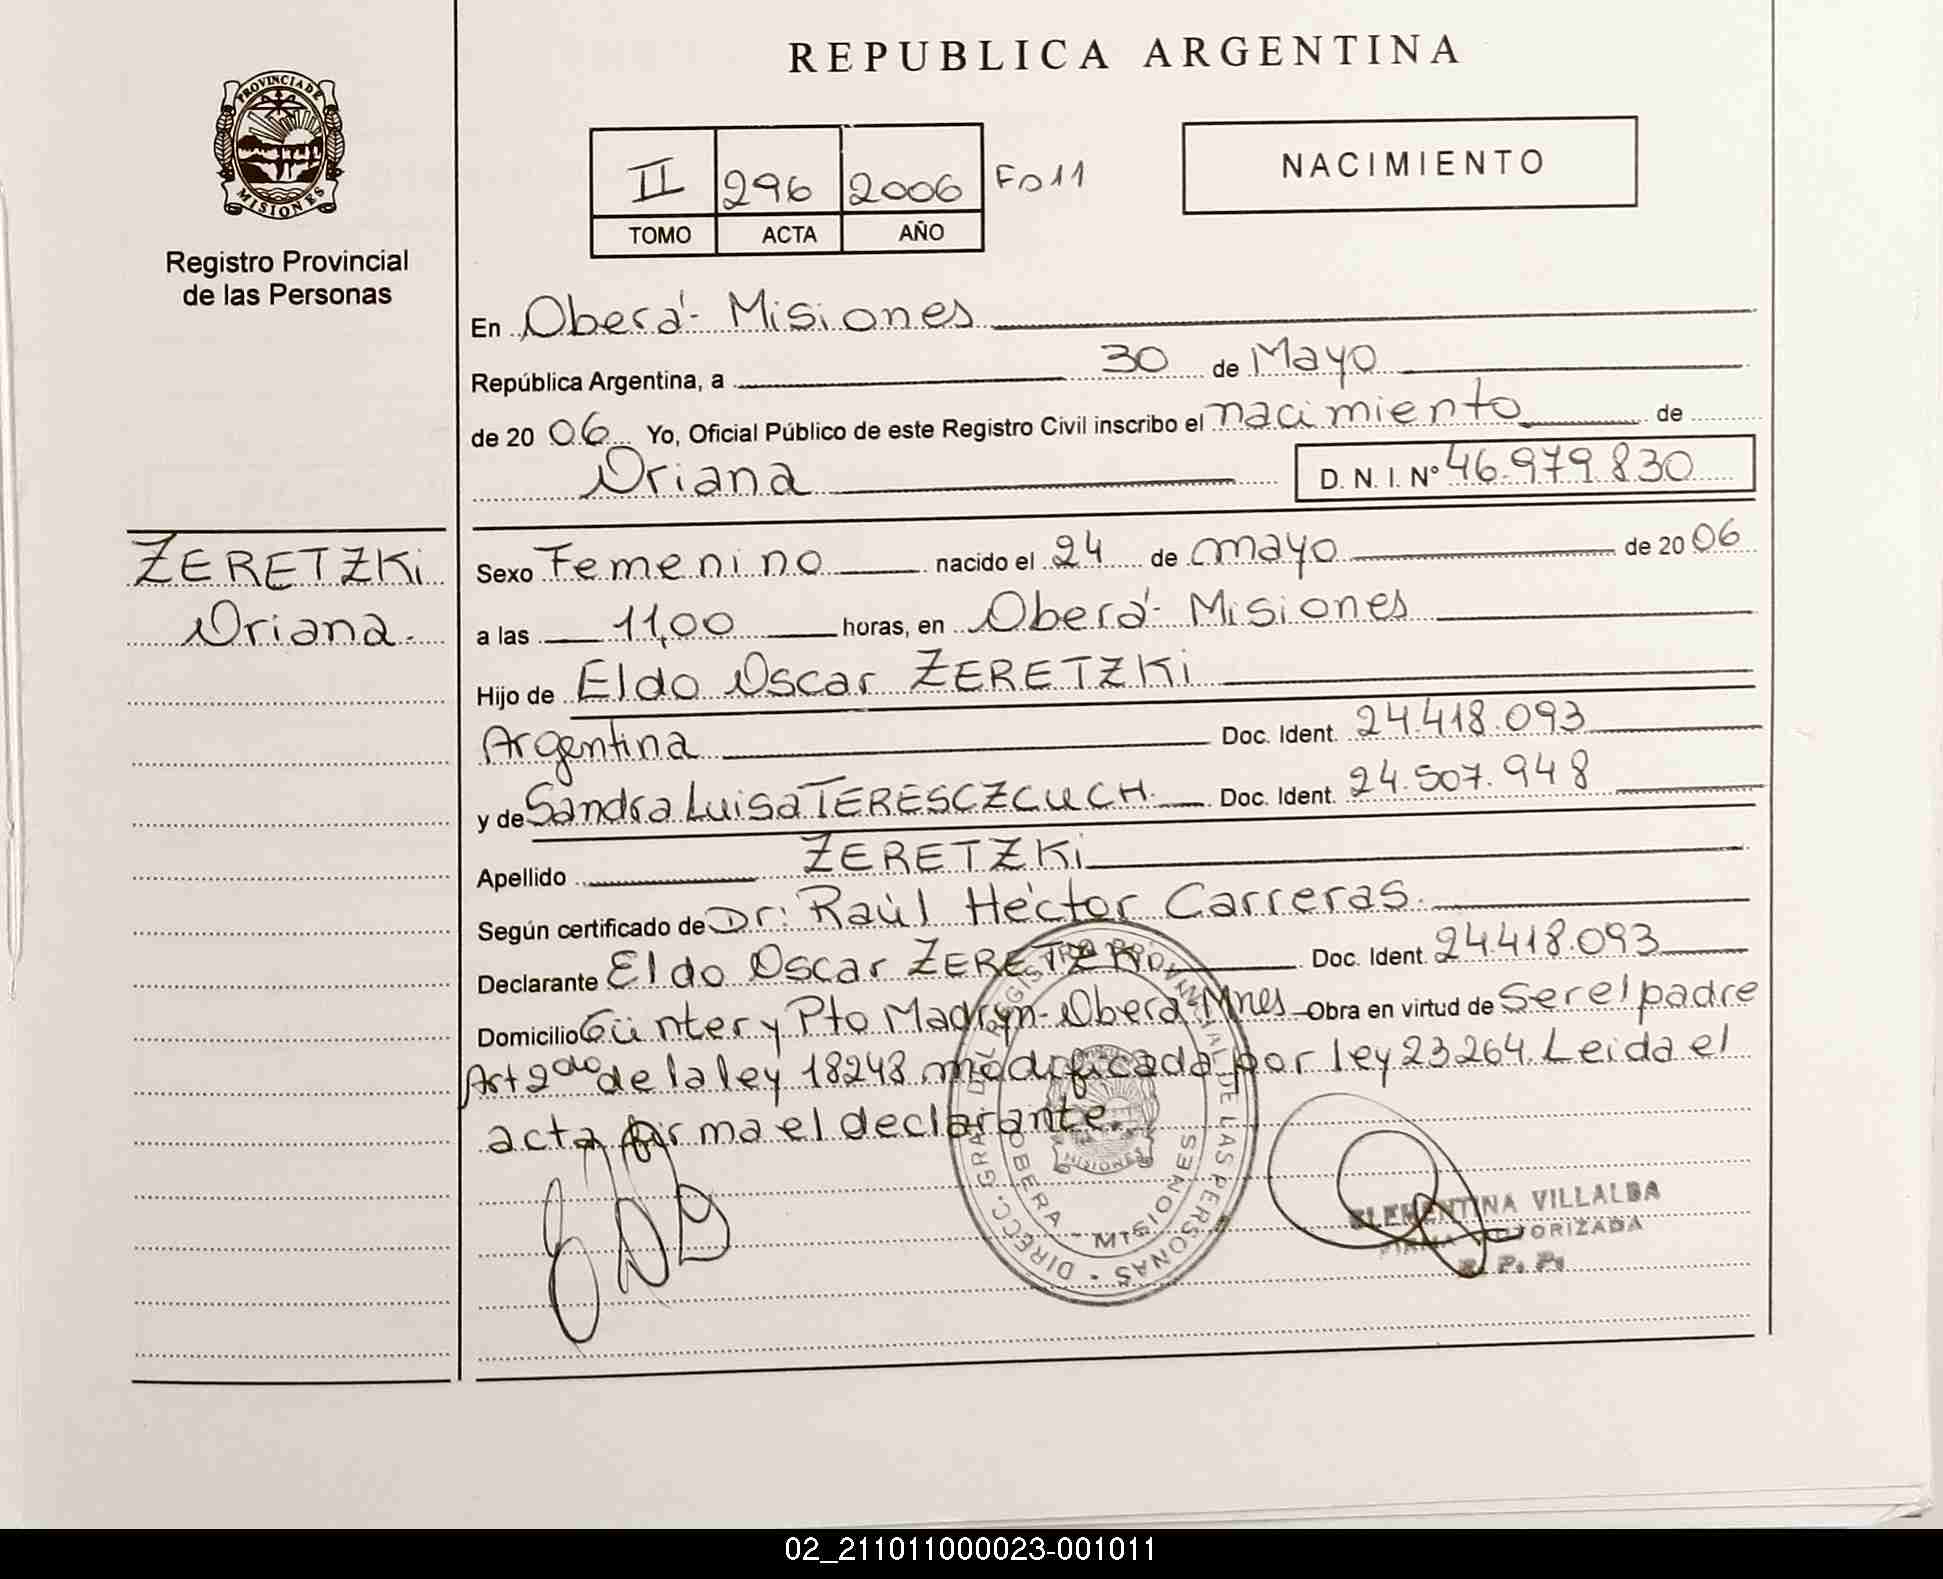 REPUBLICA ARGENTINA
PROVINCIA DE MISIONES
Registro Provincial
de las Personas
II 296 2006 Fo 11
TOMO ACTA AÑO
NACIMIENTO
En Oberá - Misiones
República Argentina, a 30 de Mayo
de 20 06 Yo, Oficial Público de este Registro Civil inscribo el nacimiento de
Oriana D. N. I. Nº 46.979.830
ZERETZKi
Oriana.
Sexo Femenino nacido el 24 de mayo de 20 06
a las 11,00 horas, en Oberá - Misiones
Hijo de Eldo Oscar ZERETZKi
Argentina Doc. Ident. 24.418.093
y de Sandra Luisa TERESCZCUCH. Doc. Ident. 24.507.948
Apellido ZERETZKi
Según certificado de Dr: Raúl Héctor Carreras.
Declarante Eldo Oscar ZERETZKi Doc. Ident. 24.418.093
Domicilio Günter y Pto Madryn - Oberá - Mnes Obra en virtud de Ser el padre
Art 2do de la ley 18248 modificada por ley 23264. Leida el
acta firma el declarante.
DIRECC. GRAL. DEL REGISTRO PROVINCIAL DE LAS PERSONAS
OBERA - MISIONES
MISIONES
CLEMENTINA VILLALBA
FIRMA AUTORIZADA
R. P. P.
02_211011000023-001011